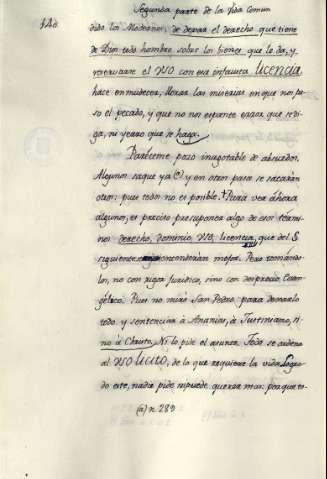 Segunda parte de la Vida Comun
140
dido los Modernos, de dexar el derecho que tiene
de Dios todo hombre sobre los bienes que le da, y
reservarse el uso con esa infausta licencia,
hace enmudecer, llorar las miserias en que nos pu-
so el pecado, y que no nos espante error que se di-
ga, ni yerro que se haga.
Pareceme pozo inagotable de absurdos.
Algunos saque ya (a) y en otros para se sacarán
otros: pues todo no es posible. Para ver ahora
algunos, es preciso presuponer algo de esos termi-
nos derecho, dominio uso, licencia, que del §
siguiente se entenderian mejor. Pero tomando-
los, no con rigor Juridico, sino con desprecio Evan-
gélico. Pues no miró San Pedro para donarlo
todo y sentenciar à Ananias, à Justiniano, si
no à Christo. Ni lo pide el asunto. Todo se ordena
al uso licito, de lo que requiere la vida. Logra-
do este, nadie pide ni puede querer mas: porque es-
(a) n. 289